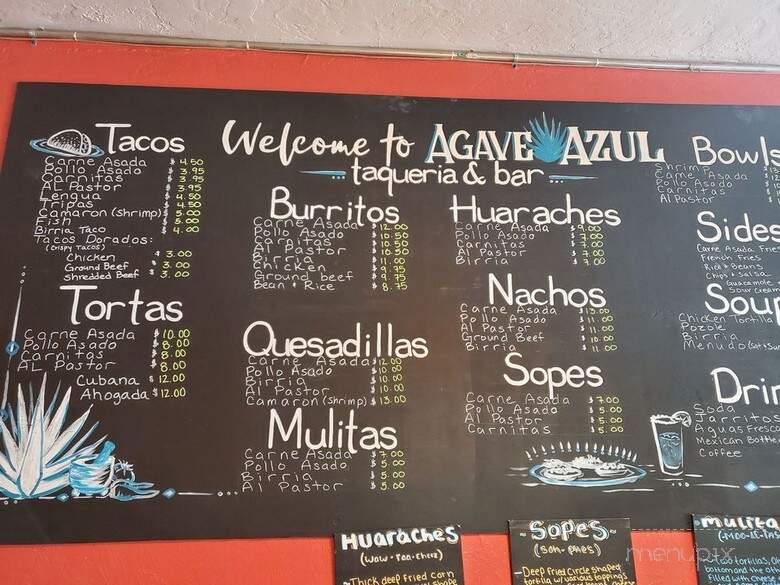 Welcome to AGAVE AZUL
taqueria & bar
Tacos
Carne Asada $ 4.50
Pollo Asado $ 3.95
Carnitas $ 3.95
AL Pastor $ 3.95
Lengua $ 4.50
Tripas $ 4.50
Camaron (shrimp) $ 5.00
Fish $ 5.00
Birria Taco $ 4.00
Tacos Dorados:
(crispy Tacos)
Chicken $ 3.00
Ground Beef $ 3.00
Shredded Beef $ 3.00
Tortas
Carne Asada $ 10.00
Pollo Asado $ 8.00
Carnitas $ 8.00
AL Pastor $ 8.00
Cubana $ 12.00
Ahogada $ 12.00
Burritos
Carne Asada $ 12.00
Pollo Asado $ 10.50
Carnitas $ 10.50
Al Pastor $ 10.50
Birria $ 11.00
Chicken $ 9.75
Ground beef $ 9.75
Bean & Rice $ 8.75
Quesadillas
Carne Asada $ 12.00
Pollo Asado $ 10.00
Birria $ 10.00
Al Pastor $ 10.00
Camaron (shrimp) $ 13.00
Mulitas
Carne Asada $ 7.00
Pollo Asado $ 5.00
Birria $ 5.00
Al Pastor $ 5.00
Huaraches
Carne Asada $ 9.00
Pollo Asado $ 7.00
Carnitas $ 7.00
Al Pastor $ 7.00
Birria $ 7.00
Nachos
Carne Asada $ 13.00
Pollo Asado $ 11.00
Al Pastor $ 11.00
Ground Beef $ 10.00
Birria $ 11.00
Sopes
Carne Asada $ 7.00
Pollo Asado $ 5.00
Al Pastor $ 5.00
Carnitas $ 5.00
Bowls
Shrimp
Carne Asada
Pollo Asado
Carnitas
Al Pastor
Sides
Carne Asada Fries
French Fries
Rice & Beans
Chips & Salsa
Guacamole
Sour Cream
Soup
Chicken Tortilla
Pozole
Birria
Menudo
Drin
Soda
Jarritos
Aguas Fresca
Mexican Bottle
Coffee
Huaraches
Thick deep fried corn
Sopes
Deep Fried Circle shaped
tortilla w/ various topping's
Mulita
two tortillas,
bottom and the oth
filled with
menupix